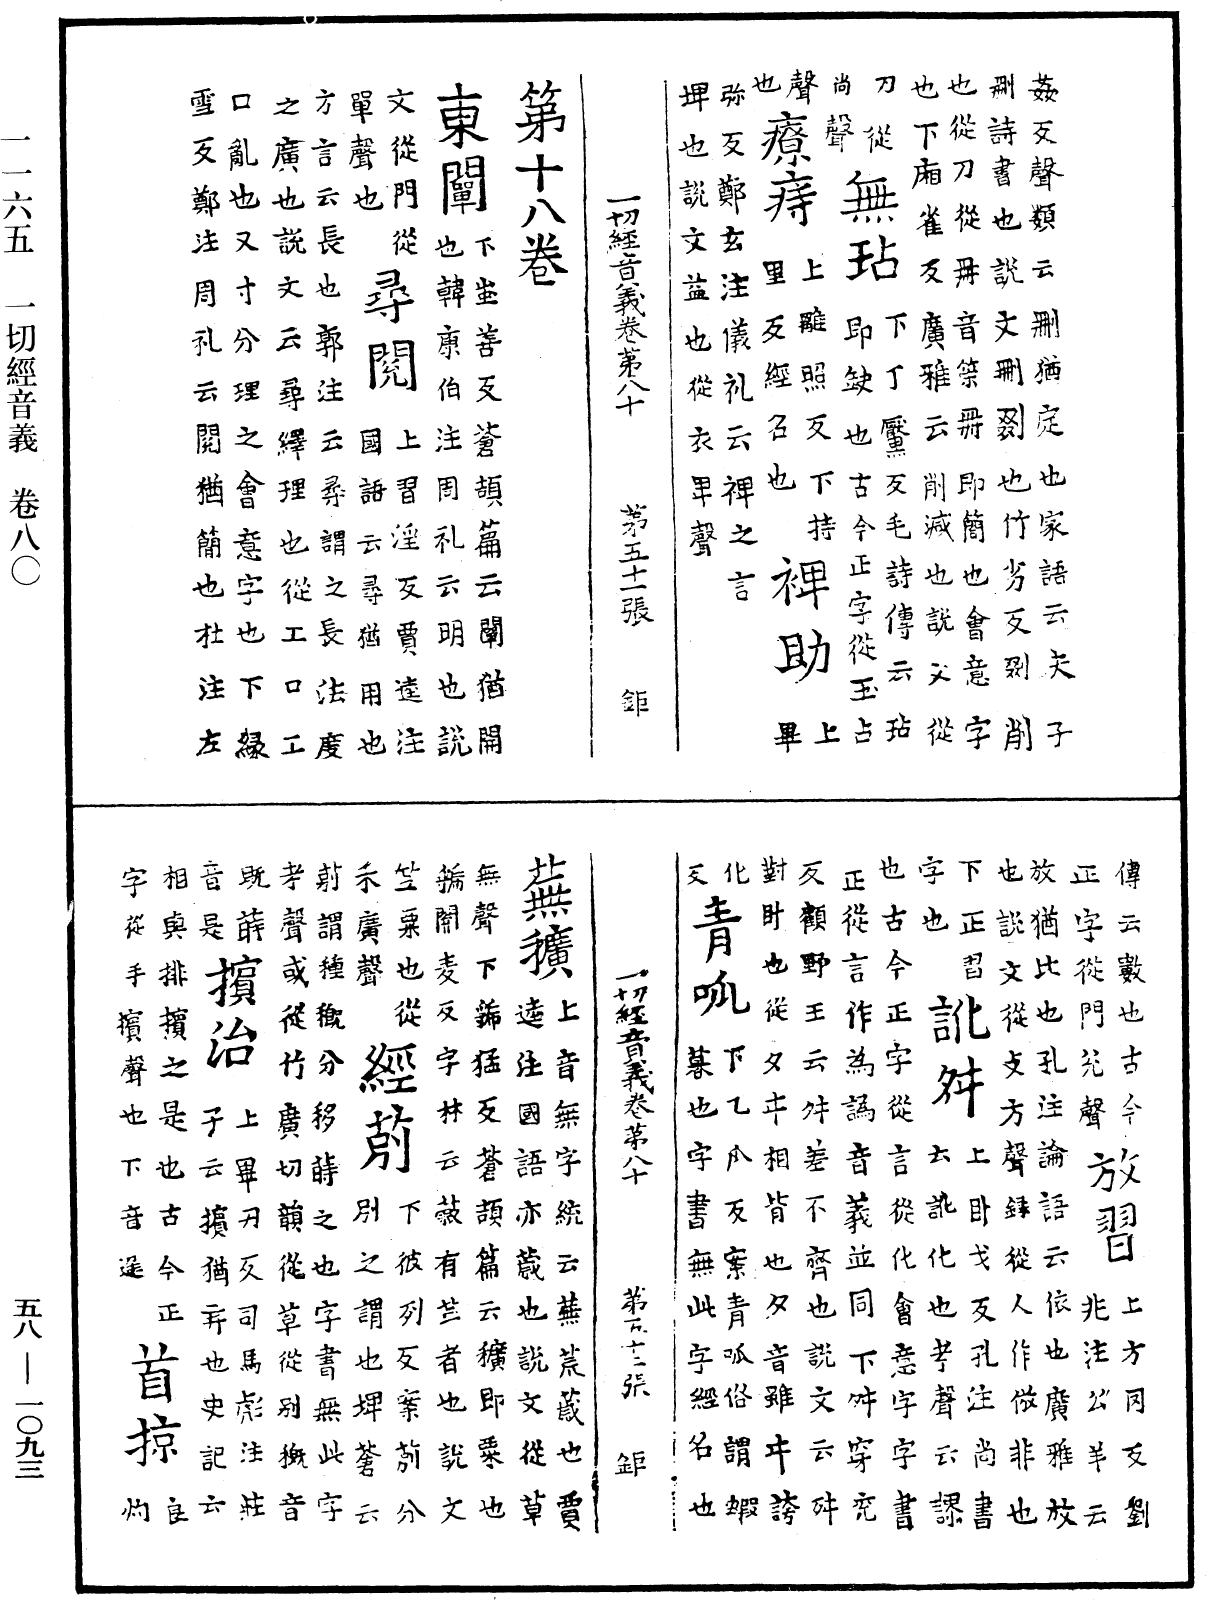 姦反聲類云刪猶定也家語云夫子
刪詩書也說文刪剟也竹劣反剟削
也從刀從冊音策冊即簡也會意字
也下廂雀反廣雅云削減也說文從
刀從
尚聲
無玷
下丁黶反毛詩傳云玷
即缺也古今正字從玉占
聲
也
療痔
上離照反下持
里反經名也
裨助
上
畢
弥反鄭玄注儀礼云裨之言
埤也說文益也從衣卑聲
一切經音義卷第八十 第五十一張 鉅
第十八卷
東闡
下䒸善反蒼頡篇云闡猶開
也韓康伯注周礼云明也說
文從門從
單聲也
尋閱
上習淫反賈逵注
國語云尋猶用也
方言云長也郭注云尋謂之長法度
之廣也說文云尋繹理也從工口工
口亂也又寸分理之會意字也下緣
雪反鄭注周礼云閱猶簡也杜注左
傳云數也古今
正字從門兊聲
放習
上方罔反劉
兆注公羊云
放猶比也孔注論語云依也廣雅放
也說文從攴方聲錄從人作倣非也
下正習
字也
訛舛
上臥戈反孔注尚書
云訛化也考聲云謬
也古今正字從言從化會意字字書
正從言作為譌音義並同下舛穿兖
反顧野王云舛差不齊也說文云舛
對臥也從夕㐄相背也夕音雖㐄誇
化
反
青呱
下乙𠂢反案青呱俗謂蝦
蟇也字書無此字經名也
一切經音義卷第八十 第五十二張 鉅
蕪穬
上音無字統云蕪荒薉也賈
逵注國語亦薉也說文從草
無聲下鑛猛反蒼頡篇云穬即粟也
稀關麦反字林云䅣有芒者也說文
笠粟也從
禾廣聲
經莂
下彼列反案莂分
別之謂也埤蒼云
莂謂種穊分移蒔之也字書無此字
考聲或從竹廣切韻從草從別穊音
既蒔
音是
擯治
上畢刃反司馬彪注莊
子云擯猶弃也史記云
相與排擯之是也古今正
字從手賓聲也下音遲
首掠
良
灼
一一六五 一切經音義 卷八〇
五八—一〇九三